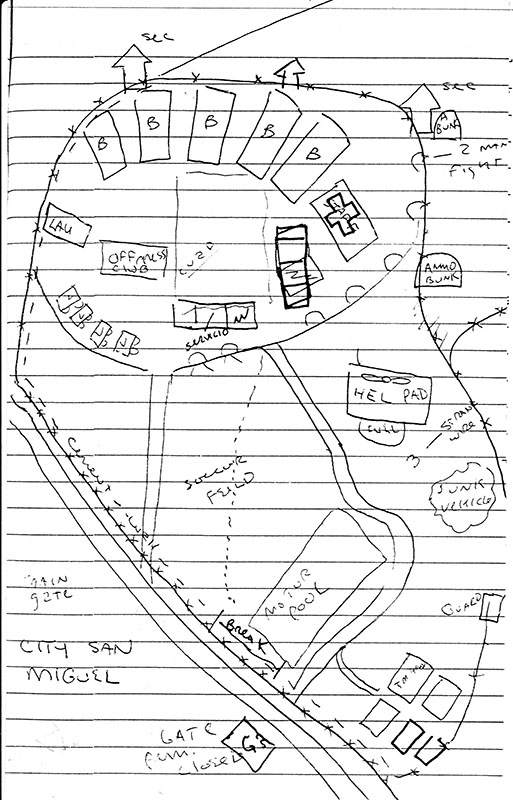 SEC
SEC
A
BUNK
B
B
B
B
B
2 MAN
FIGHT
LAU
OFF MESS
CLUB
AMMO
BUNK
SERVICIO
HEL PAD
FUEL
3 STRAND
WIRE
JUNK
VEHICLE
CEMENT WALL
SOCCUR
FEILD
MOTOR
POOL
MAIN
GATE
BREAK
GUARD
CITY SAN
MIGUEL
GATE
CLOSED